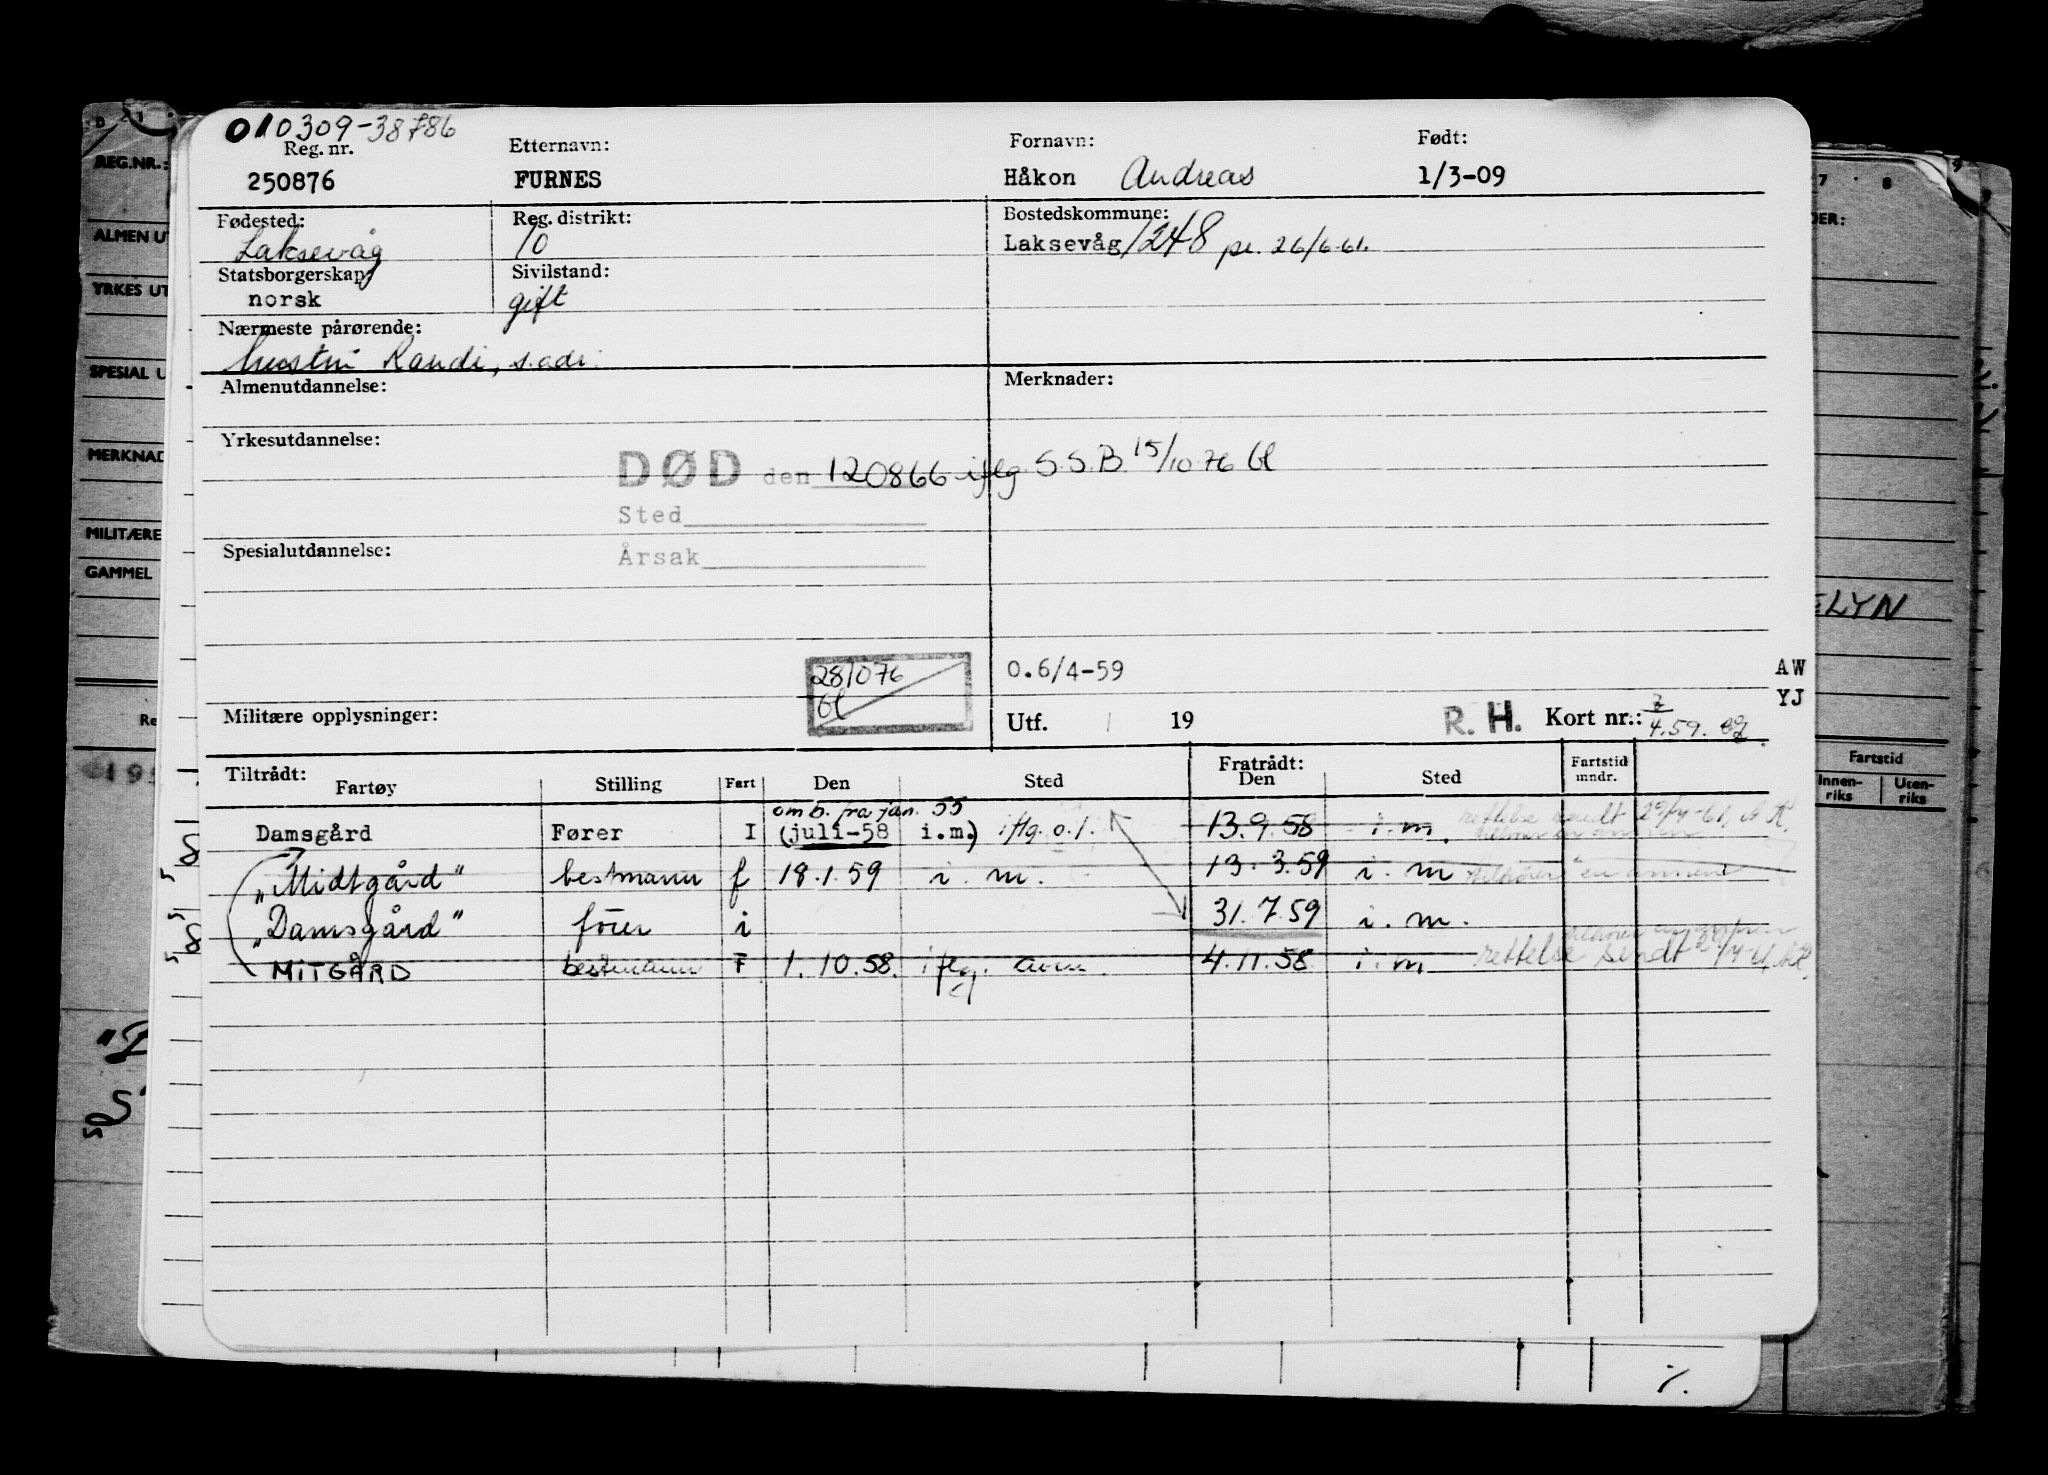 010309-38786
Reg. nr. Etternavn: Fornavn: Født:
250876 FURNES Håkon Andreas 1/3-09
Fødested: Reg. distrikt: Bostedskommune:
Laksevåg 10 Laksevåg/248 pr. 26/6-61.
Statsborgerskap: Sivilstand:
norsk gift
Nærmeste pårørende:
hustru Randi, s.adr.
Almenutdannelse: Merknader:
Yrkesutdannelse:
DØD den 120866 iflg. S.S.B. 15/10 76 Gl
Sted
Spesialutdannelse: Årsak
281076 0.6/4-59 AW
Gl YJ
Militære opplysninger: Utf. / 19 R. H. Kort nr.: 4.59.
Tiltrådt: Fratrådt:
Fartøy Stilling Fart Den Sted Den Sted Fartstid mndr.
omb. fra jan. 55
Damsgård Fører I (juli-58 i.m.) iflg. o.l. 13.9.58 i.m. rettelse sendt
"Midtgård" bestmann f 18.1.59 i.m. 13.3.59 i.m
"Damsgård" fører i 31.7.59 i.m.
MITGÅRD bestmann F 1.10.58. iflg. 4.11.58 i.m rettelse sendt
REG.NR.:
ALMEN UT
YRKES UT
SPESIAL U
MERKNAD
MILITÆRE
GAMMEL
DER:
ELYN
Fartstid
Innen-riks Uten-riks